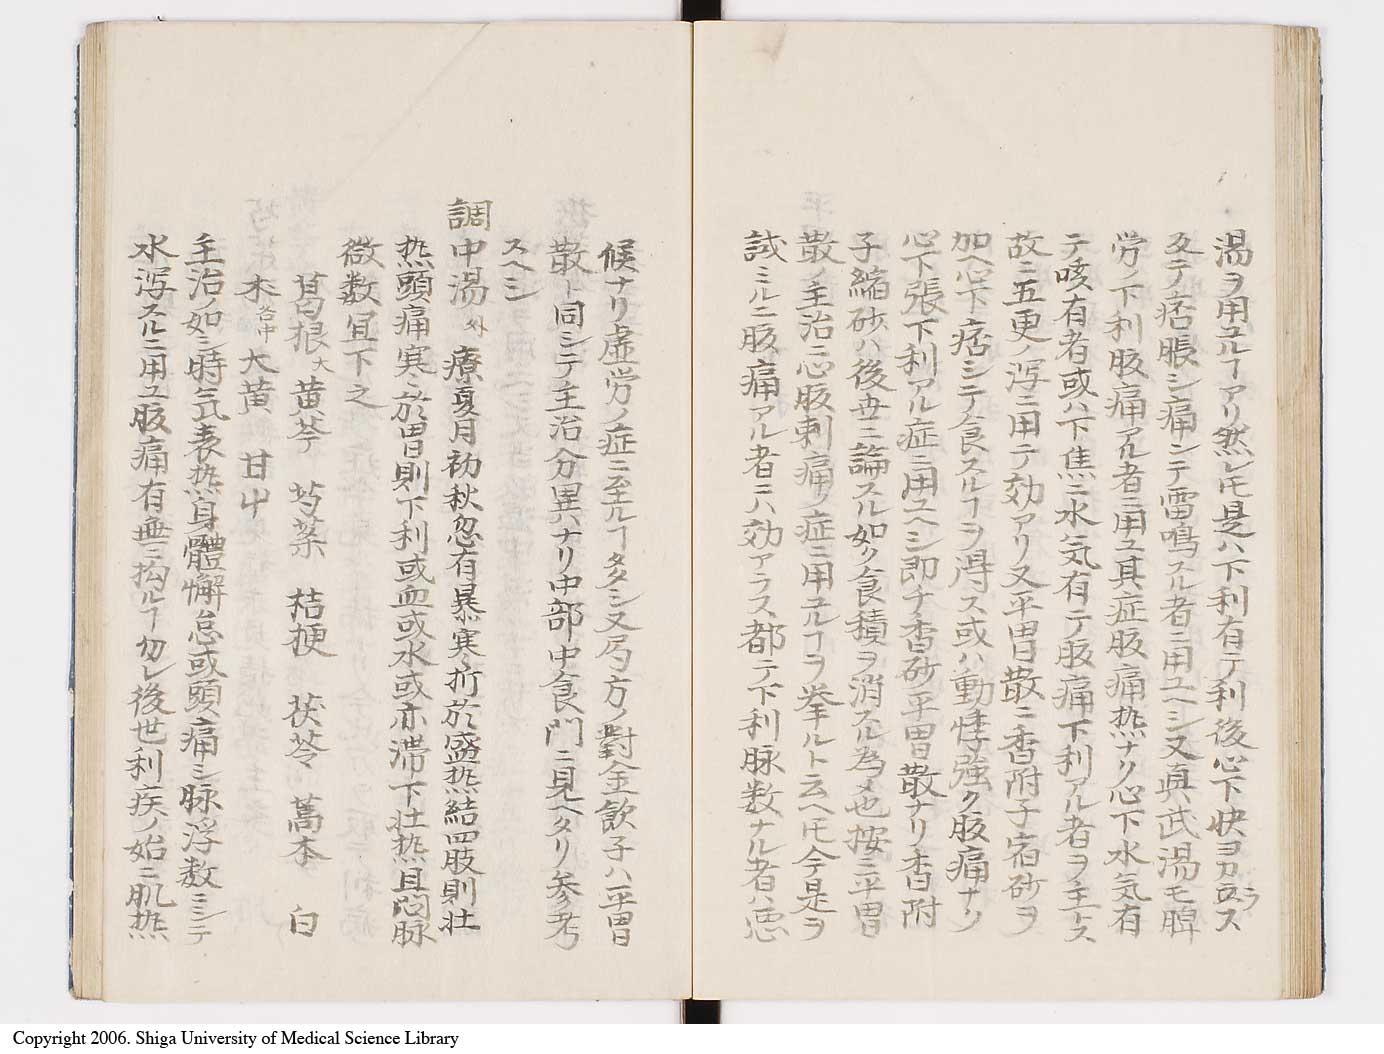 湯ヲ用ユルヿアリ然レ𪜈是ハ下利有テ利後心下快ヨカラス
又テ痞脹シ痛ンテ雷鳴スル者ニ用ユヘシ又真武湯モ脾
労ノ下利腹痛アル者ニ用ユ其症腹痛热ナリ心下水気有
テ咳有者或ハ下焦ニ水気有テ腹痛下利アル者ヲ主トス
故ニ五更ノ瀉ニ用テ効アリ又平胃散ニ香附子宿砂ヲ
加ヘ心下痞シテ食スルヿヲ得ス或ハ動悸強ク腹痛ナリ
心下張下利アル症ニ用ユヘシ即チ香砂平胃散ナリ香附
子縮砂ハ後世ニ論スル如ク食積ヲ消スル為メ也按ニ平胃
散ノ主治ニ心腹刺痛ノ症ニ用ユルヿヲ挙ルト云ヘ𪜈今是ヲ
試ミルニ腹痛アル者ニハ効アラス都テ下利脉数ナル者ハ悪
候ナリ虚労ノ症ニ至ルヿタタシ又局方ノ對金飲子ハ平胃
散ト同シテ主治分異ハナリ中部中食門ニ見ヘタリ参考
スヘシ
調中湯 外 療夏月初秋忽有暴寒折於盛热結四肢則壮
热頭痛寒於胃則下利或血或水或赤滞下壮热且悶脉
微数宜下之
葛根大 黄芩 芍薬 桔梗 茯苓 藁本 白
朮各中 大黄 甘屮
主治ノ如シ時気表热身體懈怠或頭痛シ脉浮数ニシテ
水瀉スルニ用ユ腹痛有無ニ拘ルヿ勿レ後世利疾ノ始ニ肌热
Copyright 2006. Shiga University of Medical Science Library